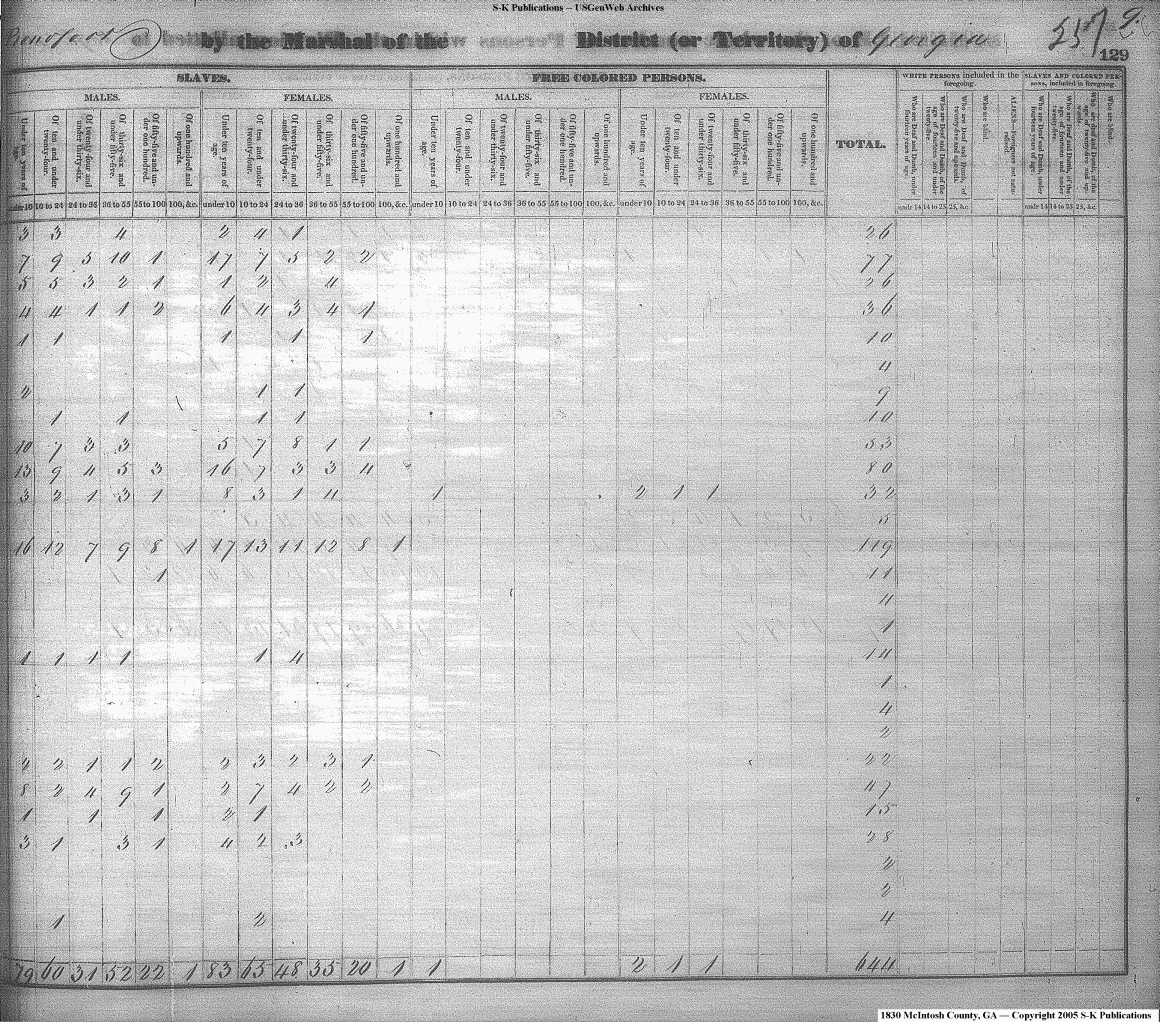 S-K Publications -- USGenWeb Archives
by the Marshal of the District (or Territory) of Georgia 257
129
SLAVES. FREE COLORED PERSONS. TOTAL. WHITE PERSONS included in the foregoing. SLAVES AND COLORED PERSONS, included in foregoing.
MALES. FEMALES. MALES. FEMALES.
Under ten years of Of ten and under twenty-four. Of twenty-four and under thirty-six. Of thirty-six and under fifty-five. Of fifty-five and under one hundred. Of one hundred and upwards. Under ten years of age. Of ten and under twenty-four. Of twenty-four and under thirty-six. Of thirty-six and under fifty-five. Of fifty-five and under one hundred. Of one hundred and upwards. Under ten years of age. Of ten and under twenty-four. Of twenty-four and under thirty-six. Of thirty-six and under fifty-five. Of fifty-five and under one hundred. Of one hundred and upwards. Under ten years of age. Of ten and under twenty-four. Of twenty-four and under thirty-six. Of thirty-six and under fifty-five. Of fifty-five and under one hundred. Of one hundred and upwards.
under 10 10 to 24 24 to 36 36 to 55 55 to 100 100, &c. under 10 10 to 24 24 to 36 36 to 55 55 to 100 100, &c. under 10 10 to 24 24 to 36 36 to 55 55 to 100 100, &c. under 10 10 to 24 24 to 36 36 to 55 55 to 100 100, &c. undr 14 14 to 25 25, &c. undr 14 14 to 25 25, &c.
3 3 4 2 4 1 26
7 9 5 10 1 17 7 5 2 2 77
5 5 3 2 1 1 2 4 26
4 4 1 1 2 6 4 3 4 1 36
1 1 1 1 1 10
4
2 1 1 9
1 1 1 1 10
10 7 3 3 5 7 8 1 1 53
13 9 4 5 3 16 7 3 3 4 80
3 2 1 3 1 8 3 1 4 1 2 1 1 32
5
16 12 7 9 8 1 17 13 11 12 8 1 119
1 11
4
1
1 1 1 1 1 4 14
1
4
2
2 2 1 1 2 2 3 2 3 1 22
8 2 4 9 1 2 7 4 2 2 47
1 1 1 2 1 15
3 1 3 1 4 2 3 28
2
2
1 2 4
79 60 31 52 22 1 83 65 48 35 20 1 1 2 1 1 644
1830 McIntosh County, GA — Copyright 2005 S-K Publications